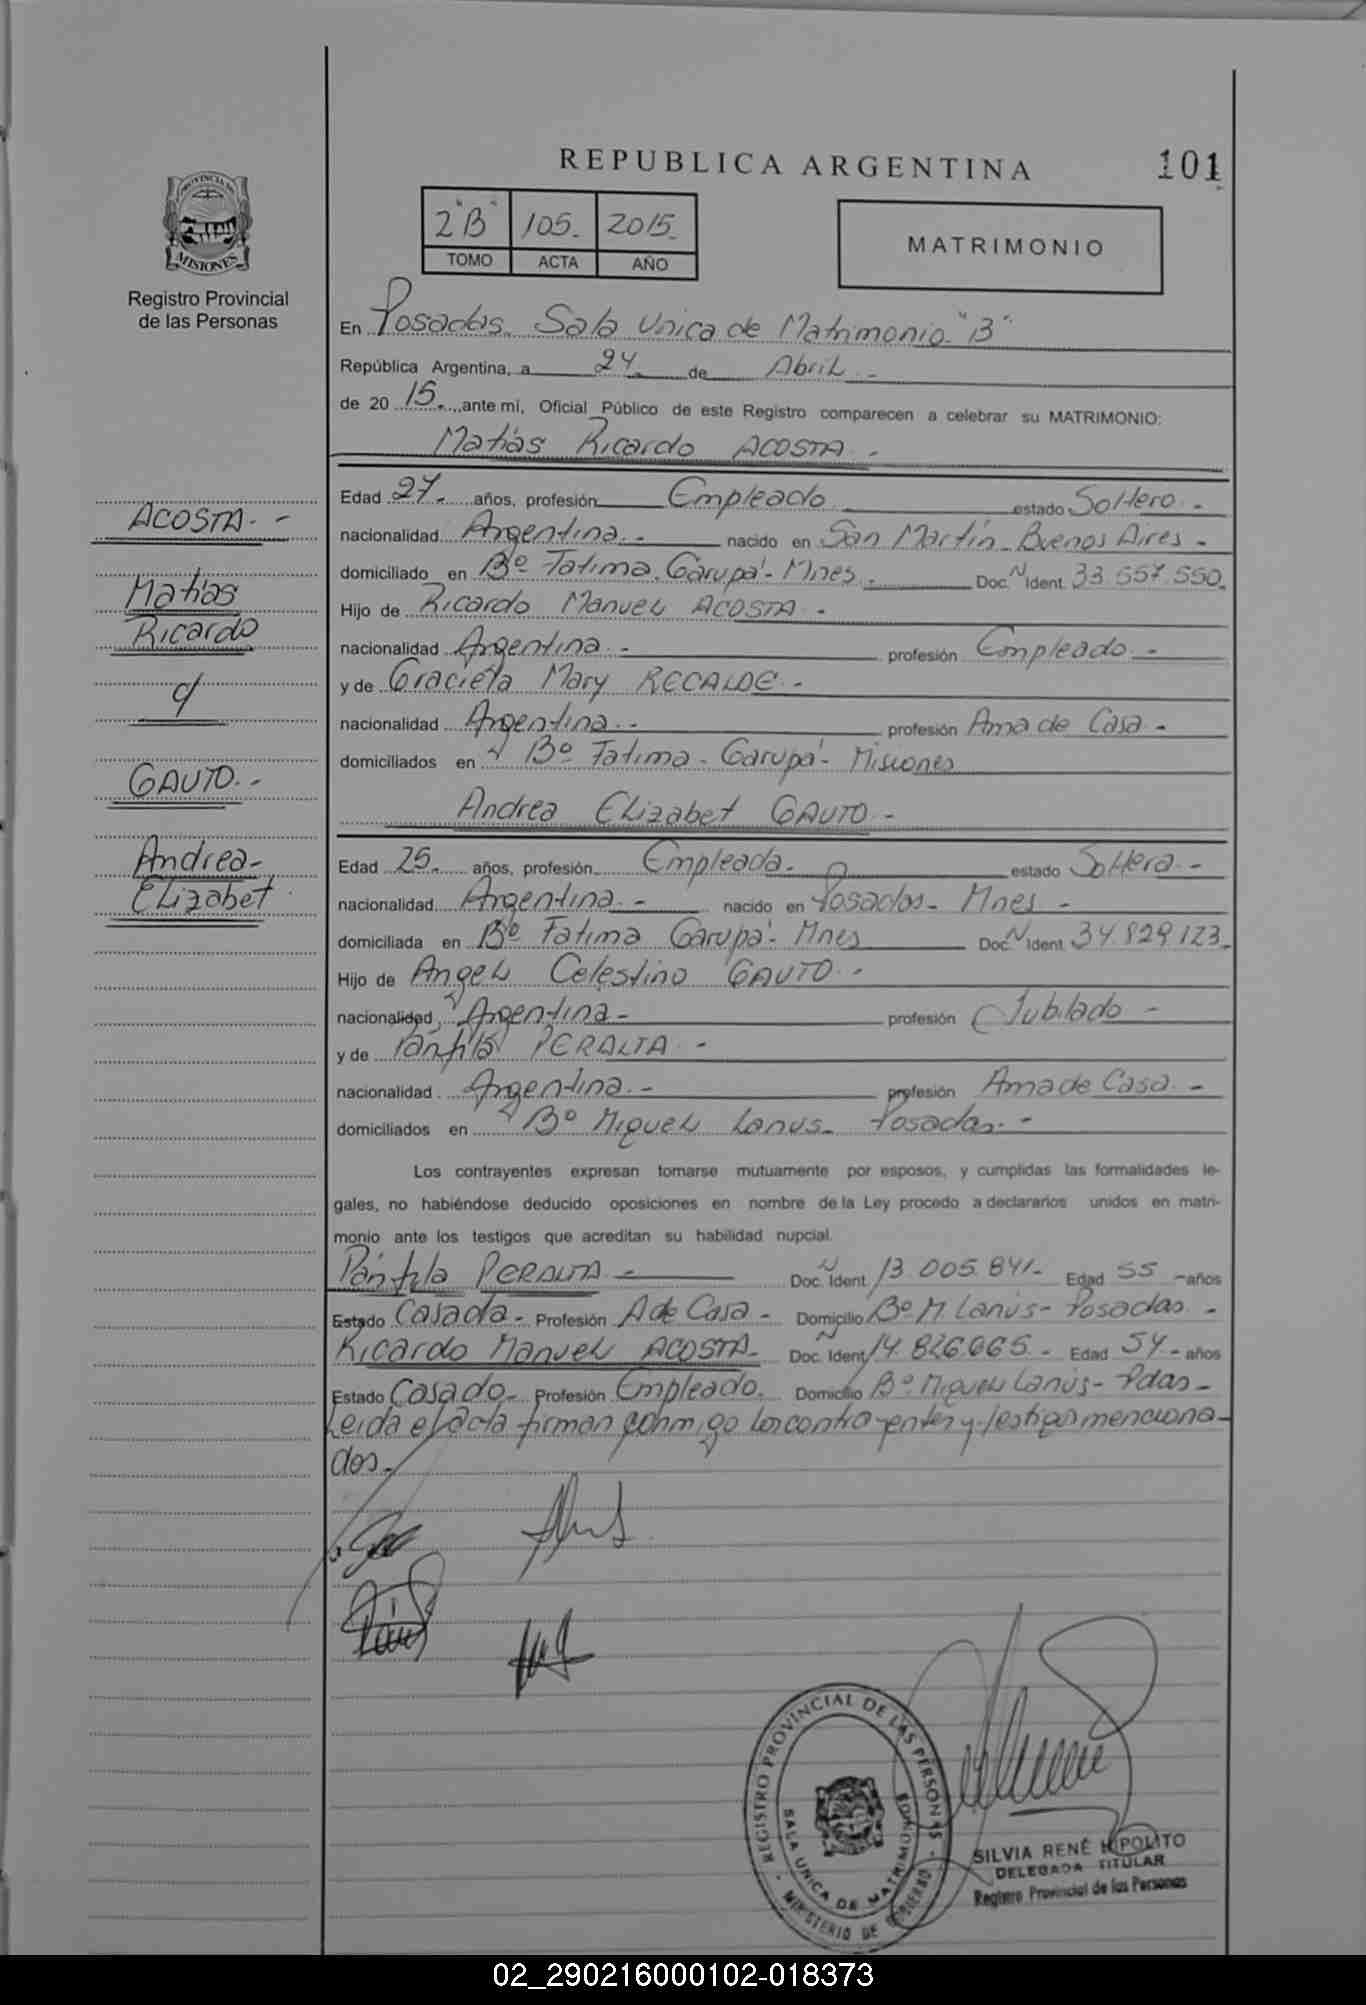 REPUBLICA ARGENTINA
101
PROVINCIA DE
MISIONES
Registro Provincial
de las Personas
2 "B" 105. 2015.
TOMO ACTA AÑO
MATRIMONIO
En Posadas. Sala Unica de Matrimonio "B"
República Argentina, a 24. de Abril.-
de 20 15. ante mí, Oficial Público de este Registro comparecen a celebrar su MATRIMONIO:
Matías Ricardo ACOSTA.-
Edad 27. años, profesión Empleado estado Soltero.-
nacionalidad Argentina.- nacido en San Martín- Buenos Aires-
domiciliado en Bº Fatima. Garupá- Mnes. Doc. N Ident. 33.557.550.
Hijo de Ricardo Manuel ACOSTA.-
nacionalidad Argentina.- profesión Empleado.-
y de Graciela Mary RECALDE.-
nacionalidad Argentina.- profesión Ama de Casa-
domiciliados en Bº Fatima- Garupá- Misiones
Andrea Elizabet GAUTO.-
Edad 25. años, profesión Empleada. estado Soltera.-
nacionalidad Argentina.- nacido en Posadas- Mnes-
domiciliada en Bº Fatima Garupá- Mnes Doc. N Ident. 34.829.123.
Hijo de Angel Celestino GAUTO.-
nacionalidad Argentina- profesión Jubilado-
y de Pánfila PERALTA.-
nacionalidad Argentina.- profesión Ama de Casa.-
domiciliados en Bº Miguel Lanus- Posadas.-
Los contrayentes expresan tomarse mutuamente por esposos, y cumplidas las formalidades le-
gales, no habiéndose deducido oposiciones en nombre de la Ley procedo a declararlos unidos en matri-
monio ante los testigos que acreditan su habilidad nupcial.
Pánfila PERALTA.- Doc. N Ident. 13.005.841- Edad 55 -años
Estado Casada- Profesión A de Casa- Domicilio Bº M. Lanús- Posadas.-
Ricardo Manuel ACOSTA- Doc. N Ident. 14.826.665.- Edad 54- años
Estado Casado- Profesión Empleado. Domicilio Bº Miguel Lanús- Pdas-
Leida el acta firman conmigo los contrayentes y testigos menciona-
dos.-
ACOSTA.-
Matías
Ricardo
c/
GAUTO.-
Andrea-
Elizabet
REGISTRO PROVINCIAL DE LAS PERSONAS
SALA UNICA DE MATRIMONIOS
MINISTERIO DE GOBIERNO
SILVIA RENÉ HIPOLITO
DELEGADA TITULAR
Registro Provincial de las Personas
02_290216000102-018373